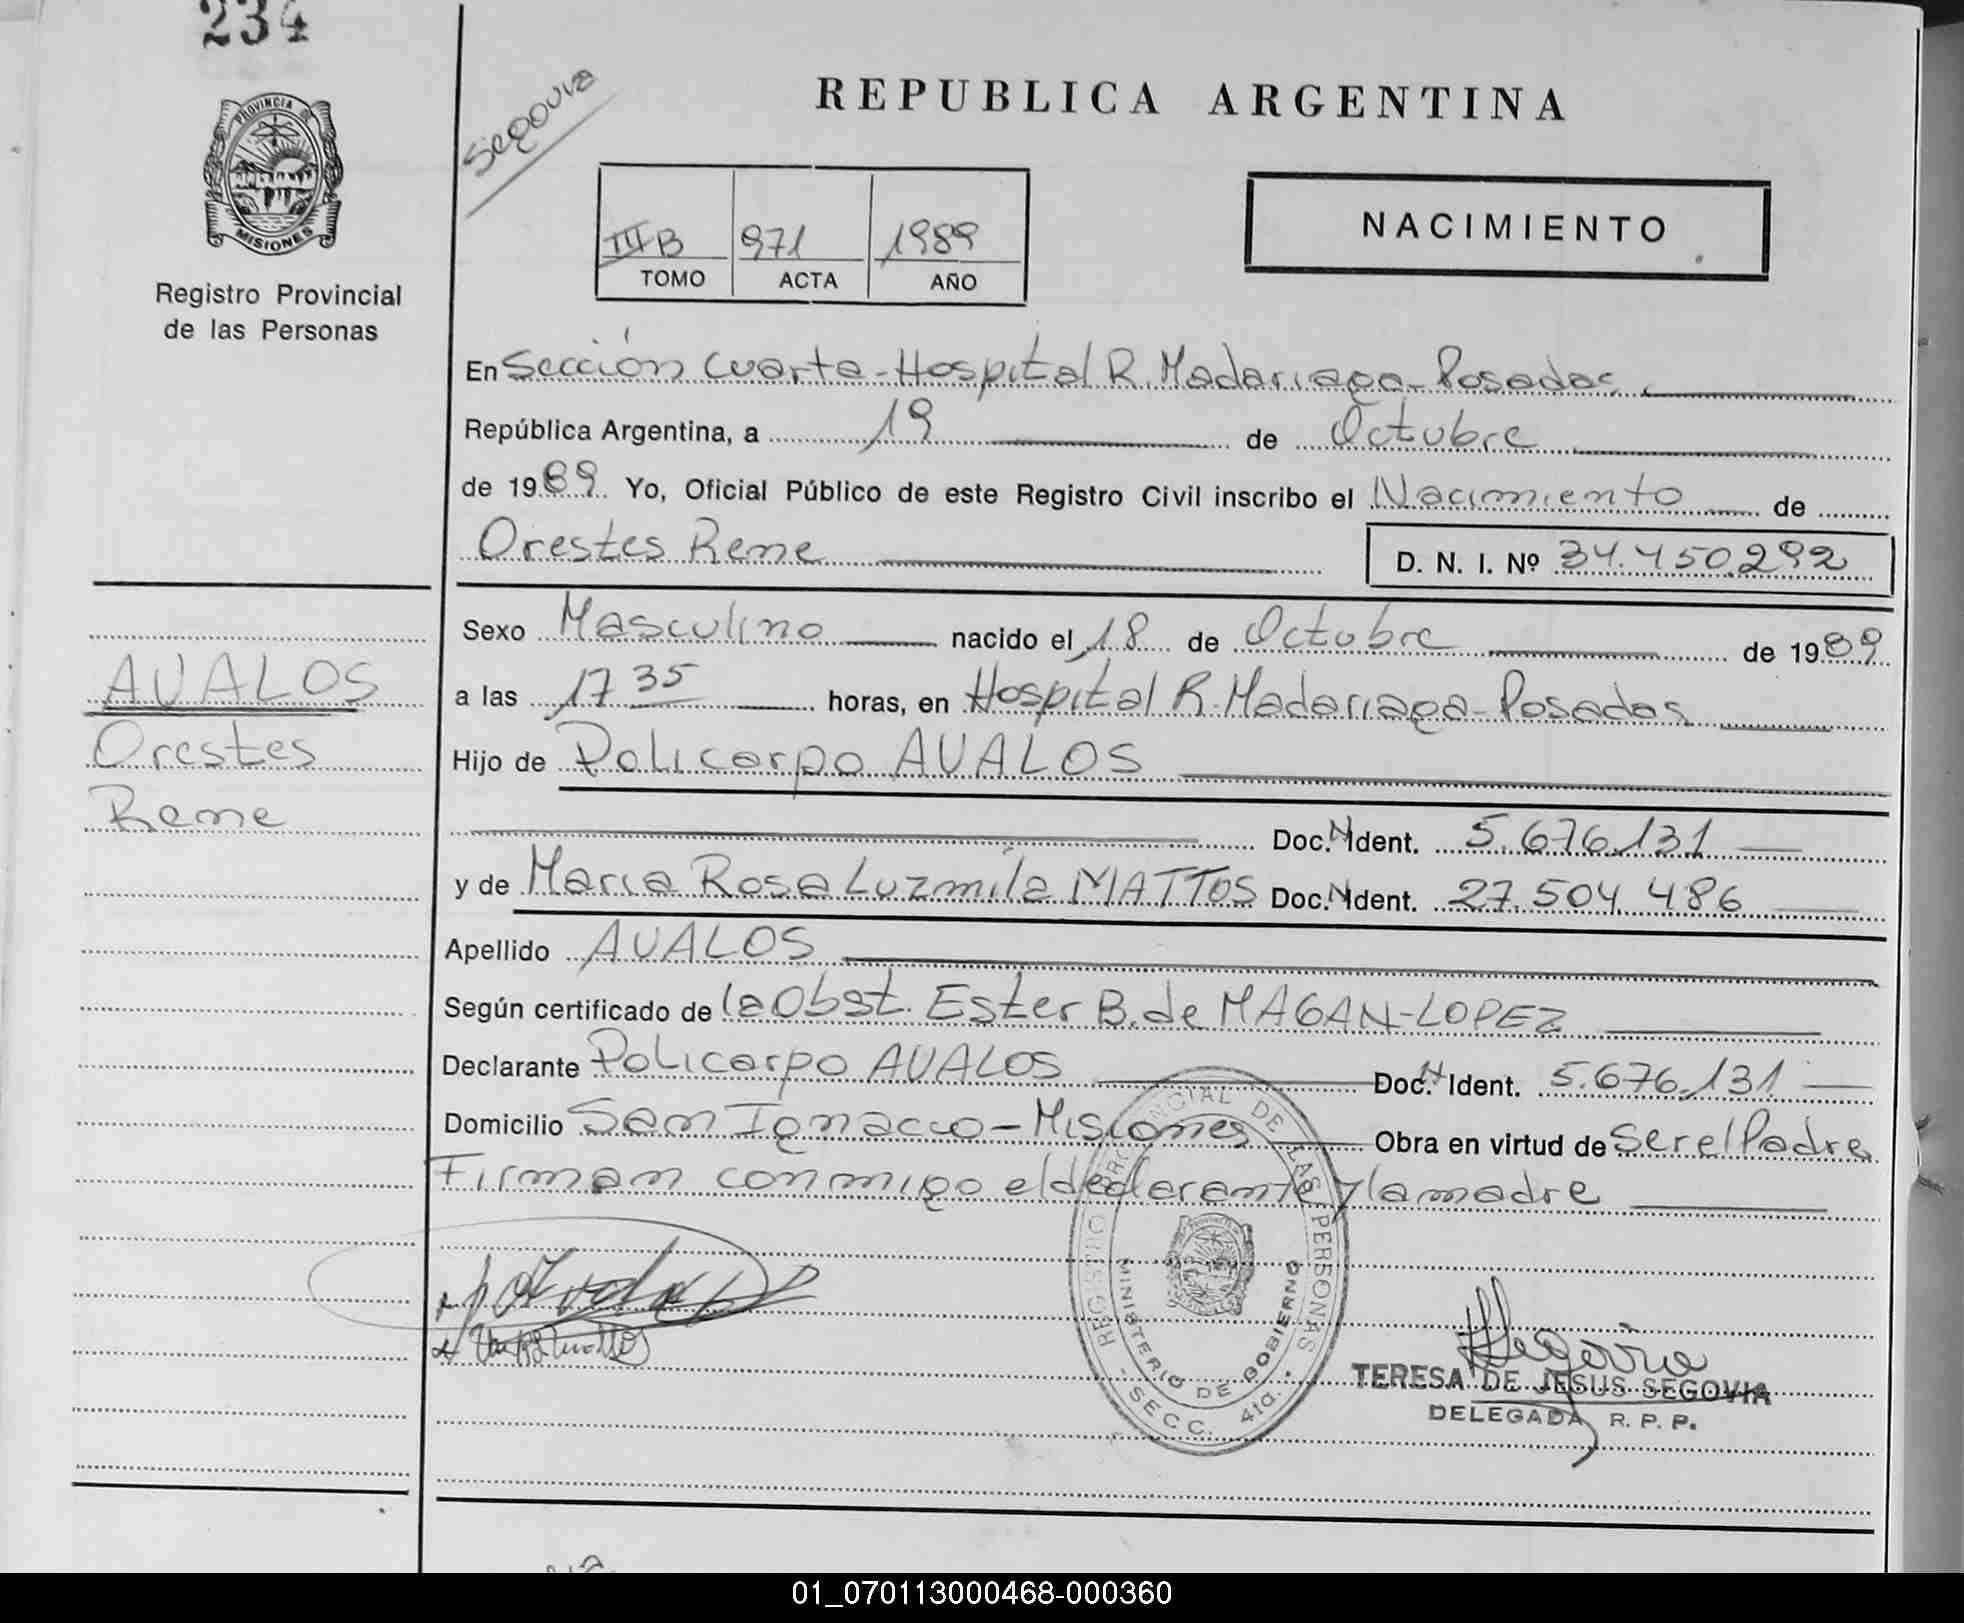 234
PROVINCIA D
MISIONES
Registro Provincial
de las Personas
Segovia
REPUBLICA ARGENTINA
III B 971 1989
TOMO ACTA AÑO
NACIMIENTO
En Sección Cuarta-Hospital R. Madariaga-Posadas,
República Argentina, a 19 de Octubre
de 1989. Yo, Oficial Público de este Registro Civil inscribo el Nacimiento de
Orestes Rene D. N. I. Nº 34.450.292
Sexo Masculino nacido el 18 de Octubre de 1989
AVALOS
a las 17 35 horas, en Hospital R. Madariaga-Posadas
Orestes
Hijo de Policarpo AVALOS
Rene
Doc. N Ident. 5.676.131
y de Maria Rosa Luzmila MATTOS Doc. N Ident. 27.504.486
Apellido AVALOS
Según certificado de la Obst. Ester B. de MAGAN-LOPEZ
Declarante Policarpo AVALOS Doc. N Ident. 5.676.131
Domicilio San Ignacio-Misiones Obra en virtud de ser el Padre
Firman conmigo el declarante y la madre
REGISTRO PROVINCIAL DE LAS PERSONAS
MINISTERIO DE GOBIERNO
- SECC. 4ta. -
Segovia
TERESA DE JESUS SEGOVIA
DELEGADA R. P. P.
01_070113000468-000360